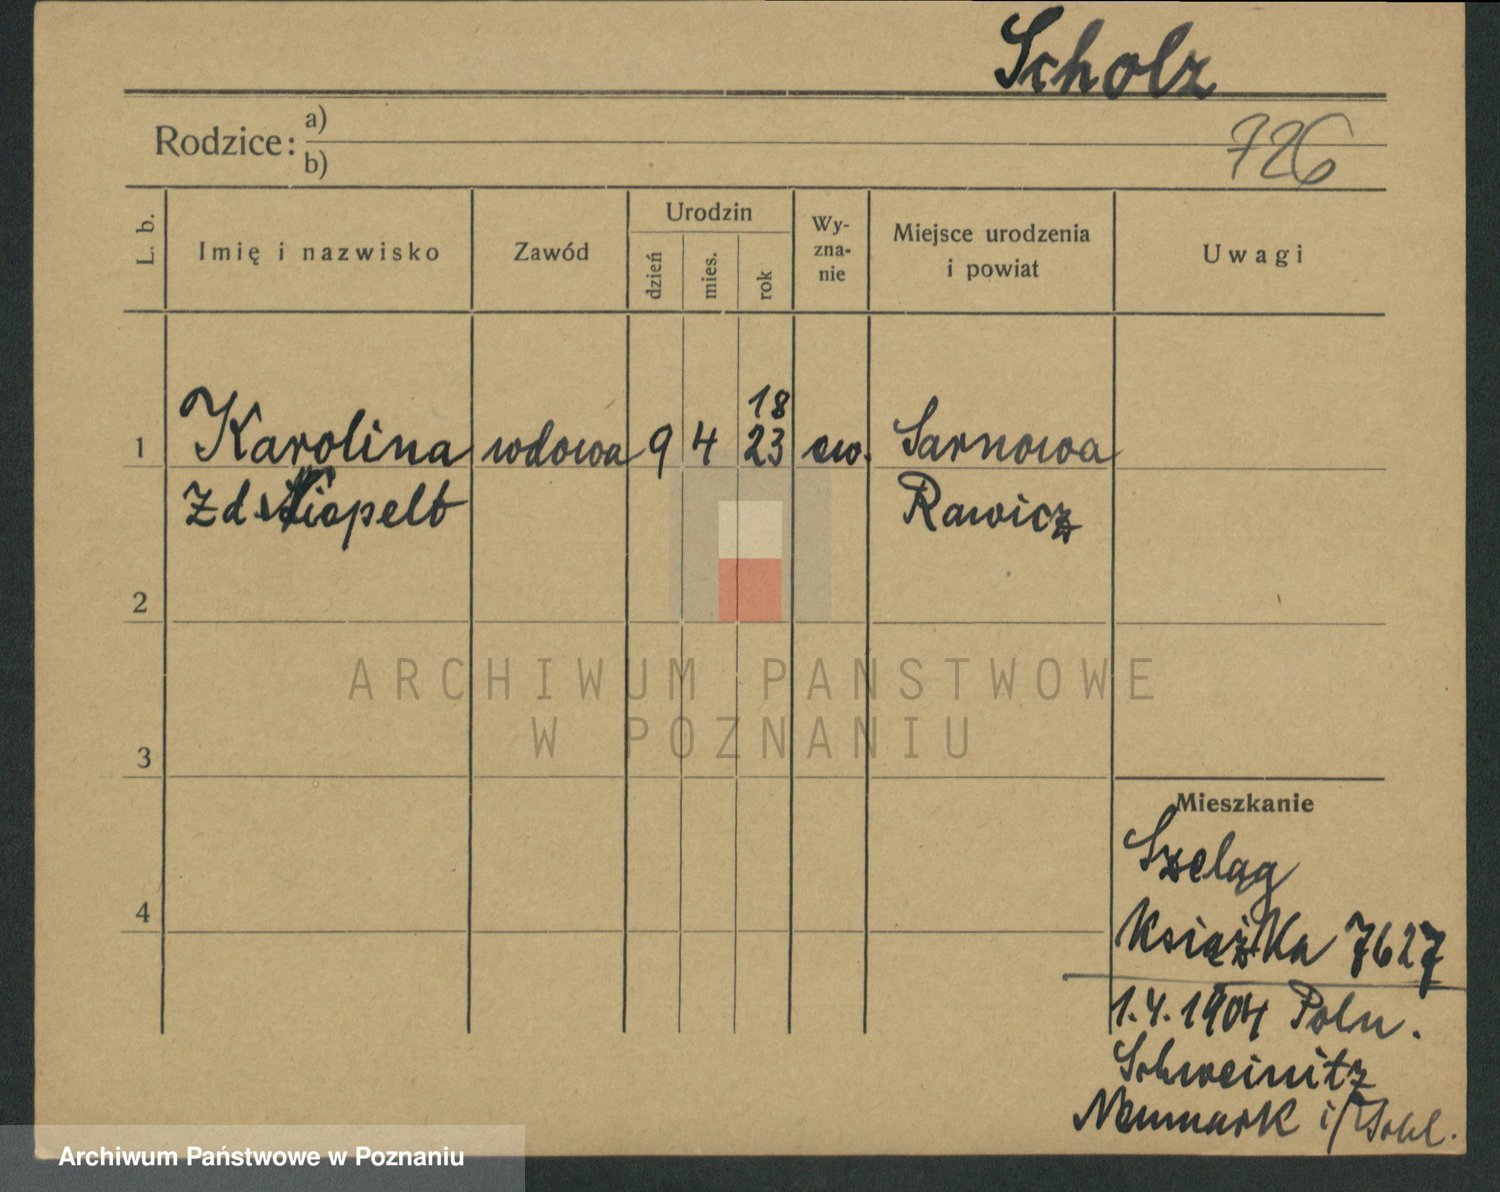 Scholz
Rodzice: a)
b)
726
L. b.
Imię i nazwisko
Zawód
Urodzin
dzień
mies.
rok
Wy-
zna-
nie
Miejsce urodzenia
i powiat
Uwagi
18
1 Karolina wdowa 9 4 23 ew. Sarnowa
z d. Rawicz
2
3
4
Mieszkanie
Szeląg
Książka 7627
1.4.1904 Poln.
Schweinitz
Neumark i/Schl.
ARCHIWUM PAŃSTWOWE
W POZNANIU
Archiwum Państwowe w Poznaniu